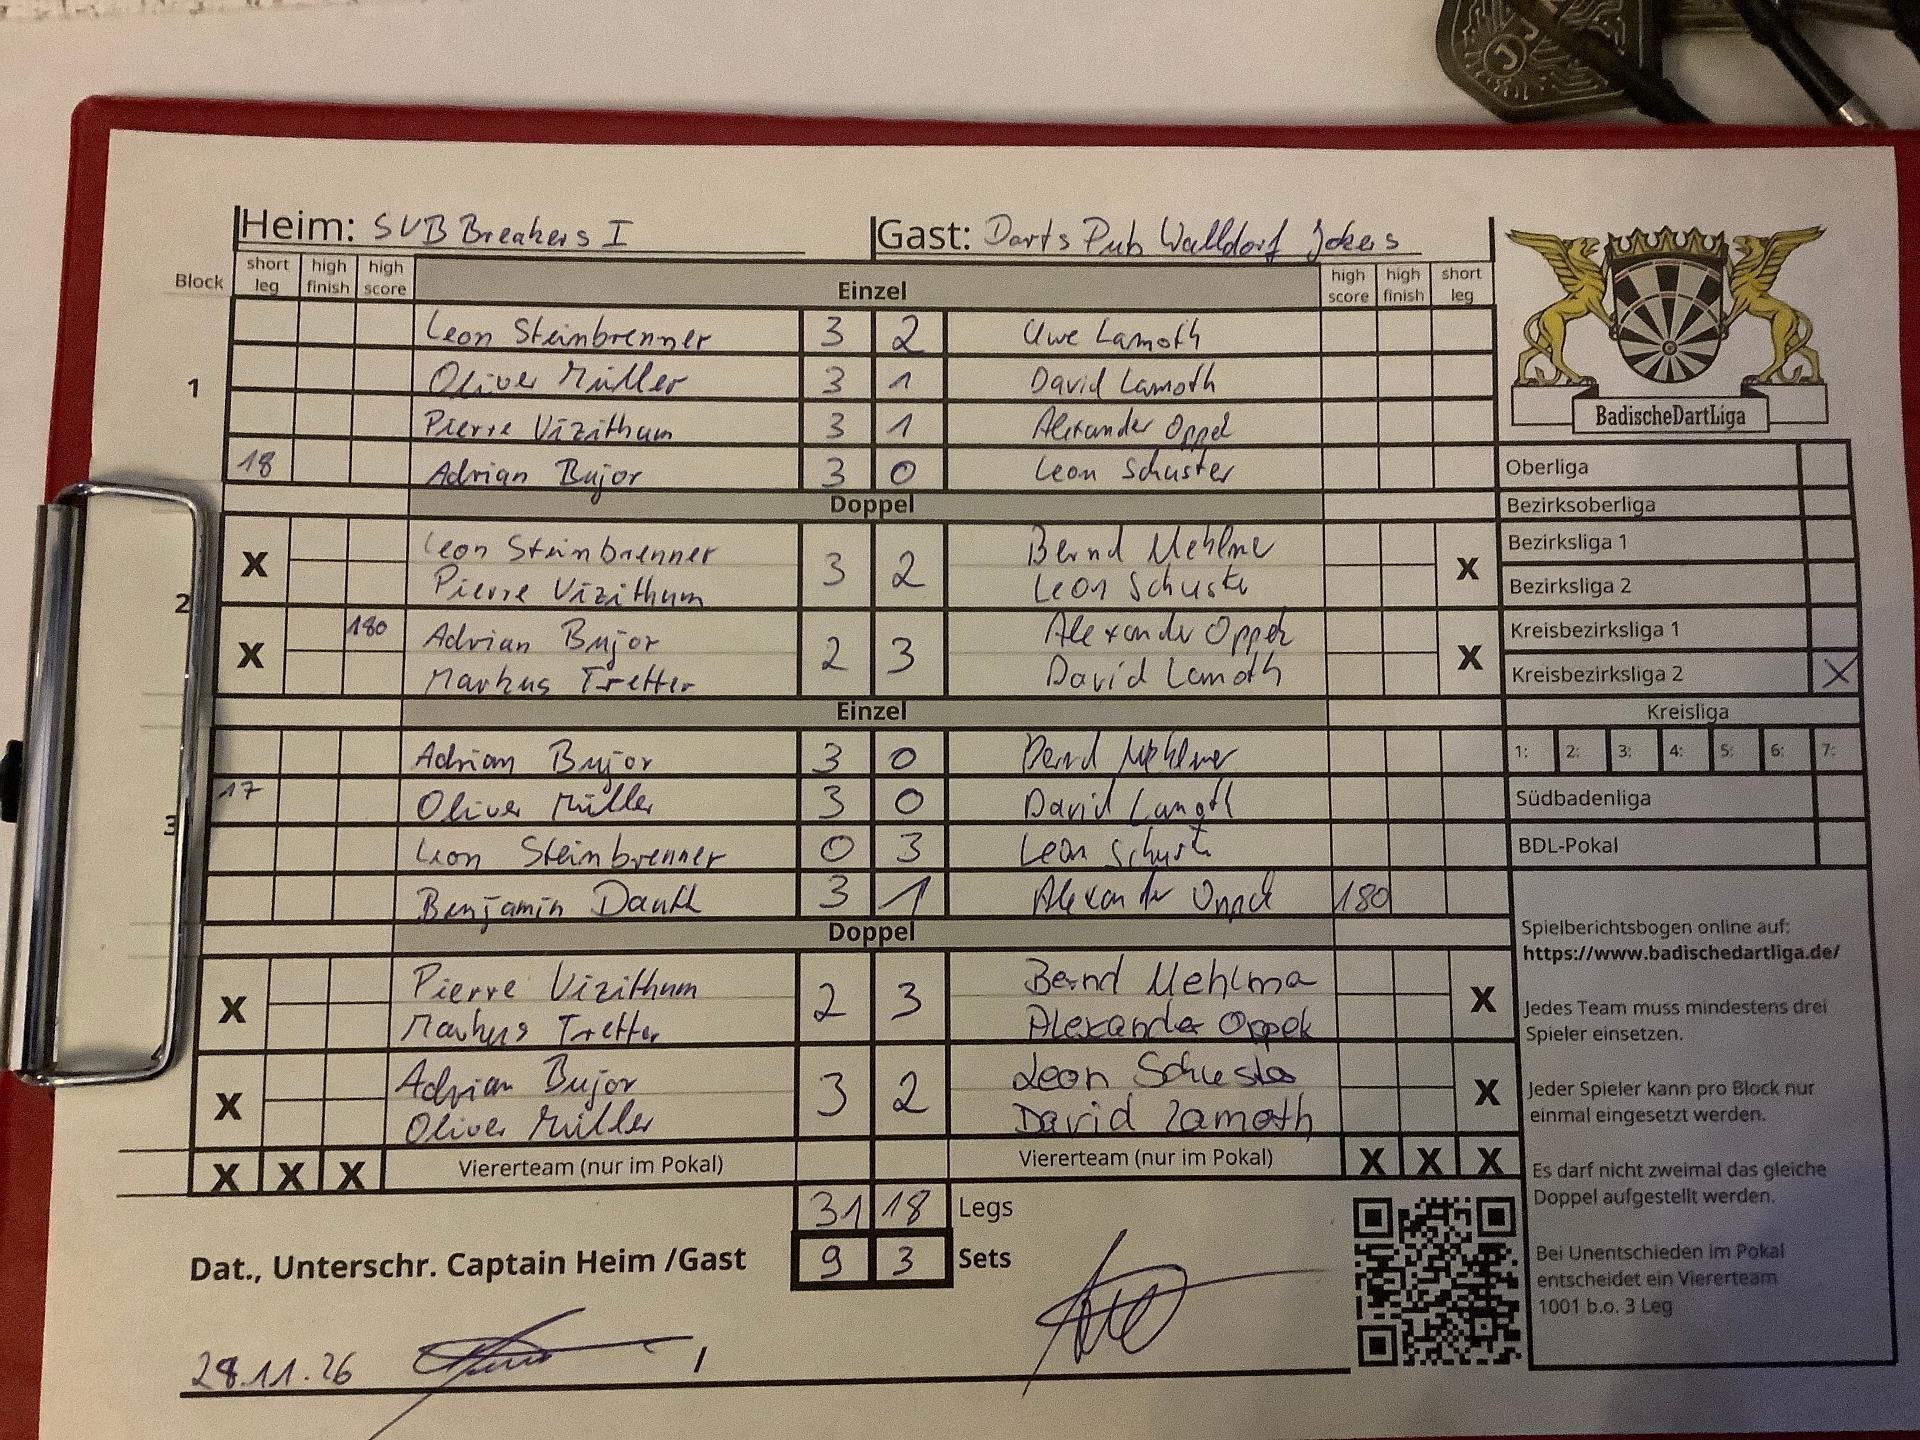 Heim: SVB Breakers I Gast: Darts Pub Walldorf Jokers
Block short leg high finish high score Einzel high score high finish short leg
1
Leon Steinbrenner 3 2 Uwe Lamoth
Oliver Müller 3 1 David Lamoth
Pierre Vizithum 3 1 Alexander Oppek
18 Adrian Bujor 3 0 Leon Schuster
Doppel
2
X Leon Steinbrenner 3 2 Bernd X
Pierre Vizithum Leon Schuster
X 180 Adrian Bujor 2 3 Alexander Oppek X
Markus Tretter David Lamoth
Einzel
3
Adrian Bujor 3 0 Bernd
17 Oliver Müller 3 0 David Lamoth
Leon Steinbrenner 0 3 Leon Schuster
Benjamin Dauth 3 1 Alexander Oppek 180
Doppel
X Pierre Vizithum 2 3 Bernd X
Markus Tretter Alexander Oppek
X Adrian Bujor 3 2 Leon Schuster X
Oliver Müller David Lamoth
X X X Viererteam (nur im Pokal) Viererteam (nur im Pokal) X X X
31 18 Legs
Dat., Unterschr. Captain Heim /Gast 9 3 Sets
28.11.26 /
BadischeDartLiga
Oberliga
Bezirksoberliga
Bezirksliga 1
Bezirksliga 2
Kreisbezirksliga 1
Kreisbezirksliga 2 X
Kreisliga
1: 2: 3: 4: 5: 6: 7:
Südbadenliga
BDL-Pokal
Spielberichtsbogen online auf:
https://www.badischedartliga.de/
Jedes Team muss mindestens drei
Spieler einsetzen.
Jeder Spieler kann pro Block nur
einmal eingesetzt werden.
Es darf nicht zweimal das gleiche
Doppel aufgestellt werden.
Bei Unentschieden im Pokal
entscheidet ein Viererteam
1001 b.o. 3 Leg